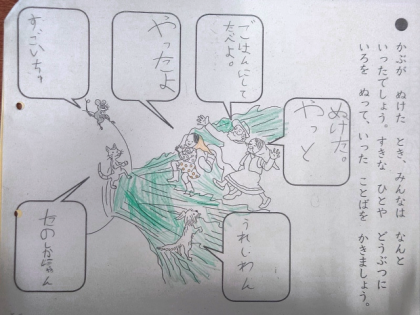 かぶが ぬけた とき、みんなは なんと
いったでしょう。すきな ひとや どうぶつに
いろを ぬって、いった ことばを かきましょう。
ぬけた。
やっと
ごはんにして
たべよ。
やったよ
すごいちゅ
うれしいわん